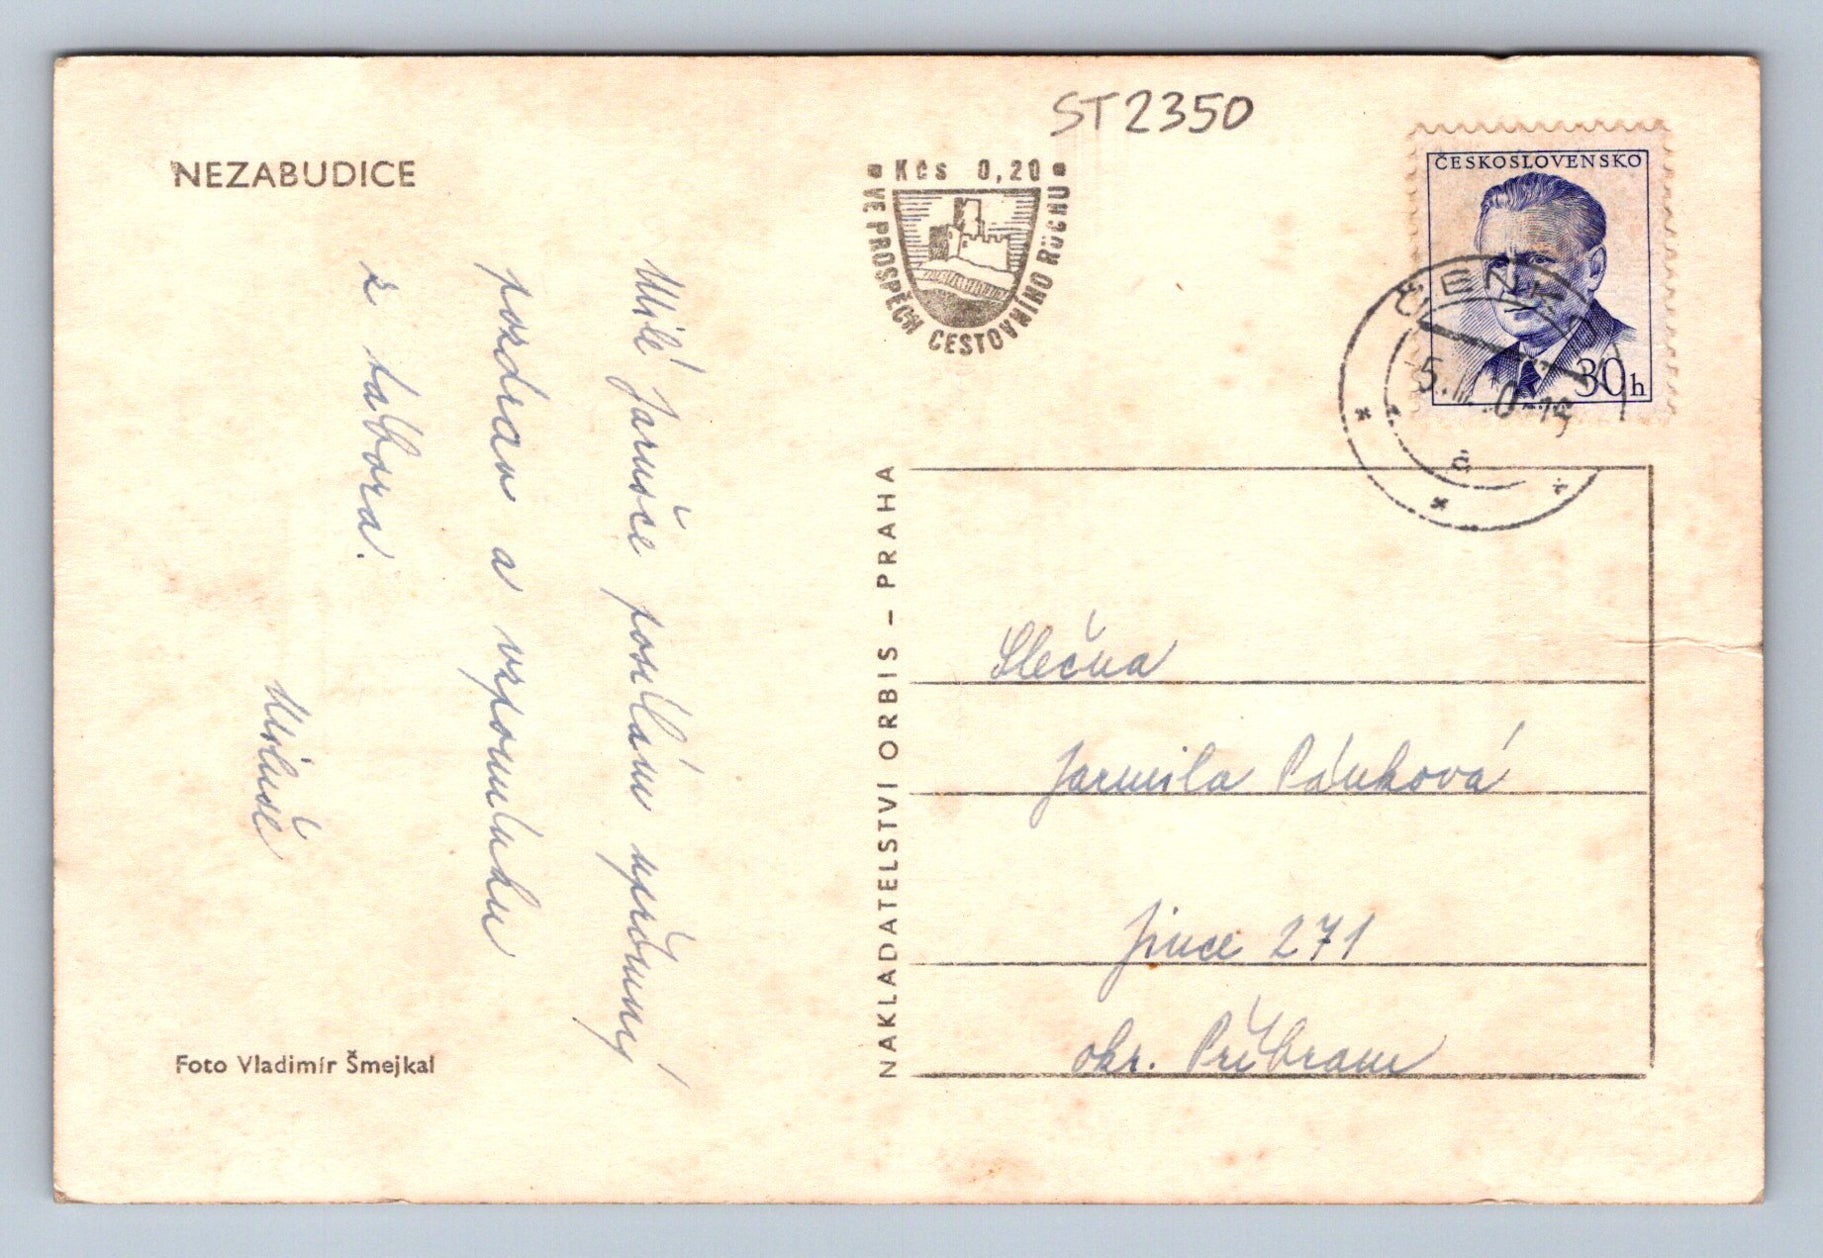 ST2350
NEZABUDICE
Kčs 0,20
VE PROSPĚCH CESTOVNÍHO RUCHU
ČESKOSLOVENSKO
30h
ČENK
5.
Milé Jarušce posílám upřímný
pozdrav a vzpomínku
z tábora.
Miluše
NAKLADATELSTVÍ ORBIS – PRAHA
Slečna
Jarmila Pánková
Jince 271
okr. Příbram
Foto Vladimír Šmejkal